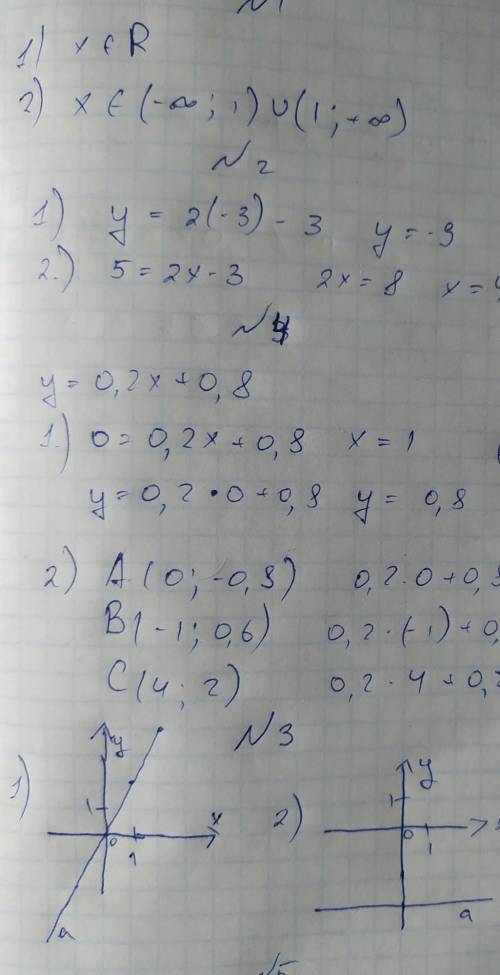 №1
1) x ∈ R
2) x ∈ (-∞; 1) ∪ (1; +∞)
№2
1) y = 2(-3) - 3 y = -9
2.) 5 = 2x - 3 2x = 8 x = 4
№4
y = 0,2x + 0,8
1.) 0 = 0,2x + 0,8 x = 1
y = 0,2 • 0 + 0,8 y = 0,8
2) A (0; -0,8) 0,2 · 0 + 0,8
B(-1; 0,6) 0,2 · (-1) + 0,
C(4; 2) 0,2 · 4 + 0,
№3
1) y 1 x 0 1 a
2) y 1 0 1 a
№5